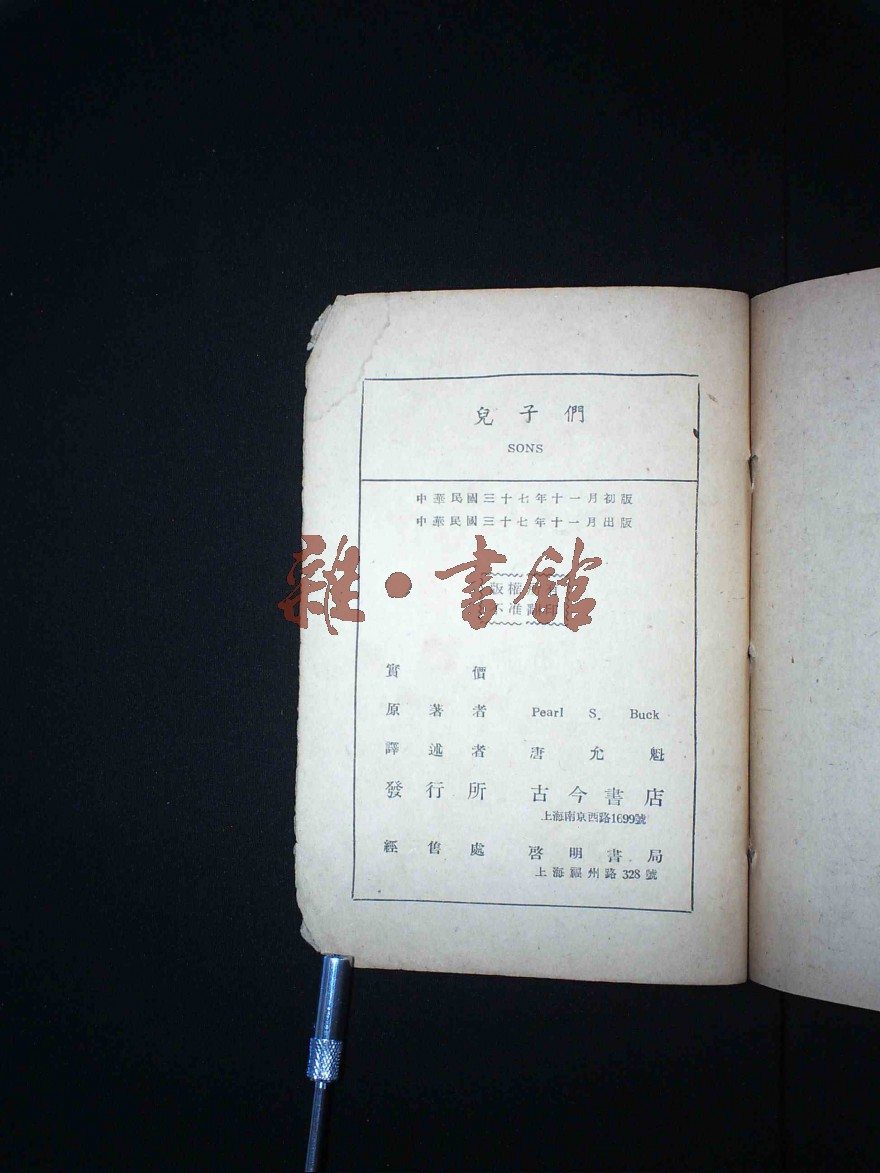 兒子們
SONS
中華民國三十七年十一月初版
中華民國三十七年十一月出版
雜·書館
版權所有
不准翻印
實價
原著者 Pearl S. Buck
譯述者 唐允魁
發行所 古今書店
上海南京西路1699號
經售處 啓明書局
上海福州路328號